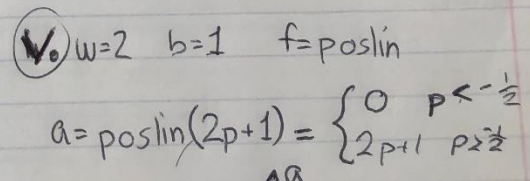 V. w=2 b=1 f=poslin
a= poslin(2p+1) = { 0 p < -1/2
2p+1 p≥-1/2
a